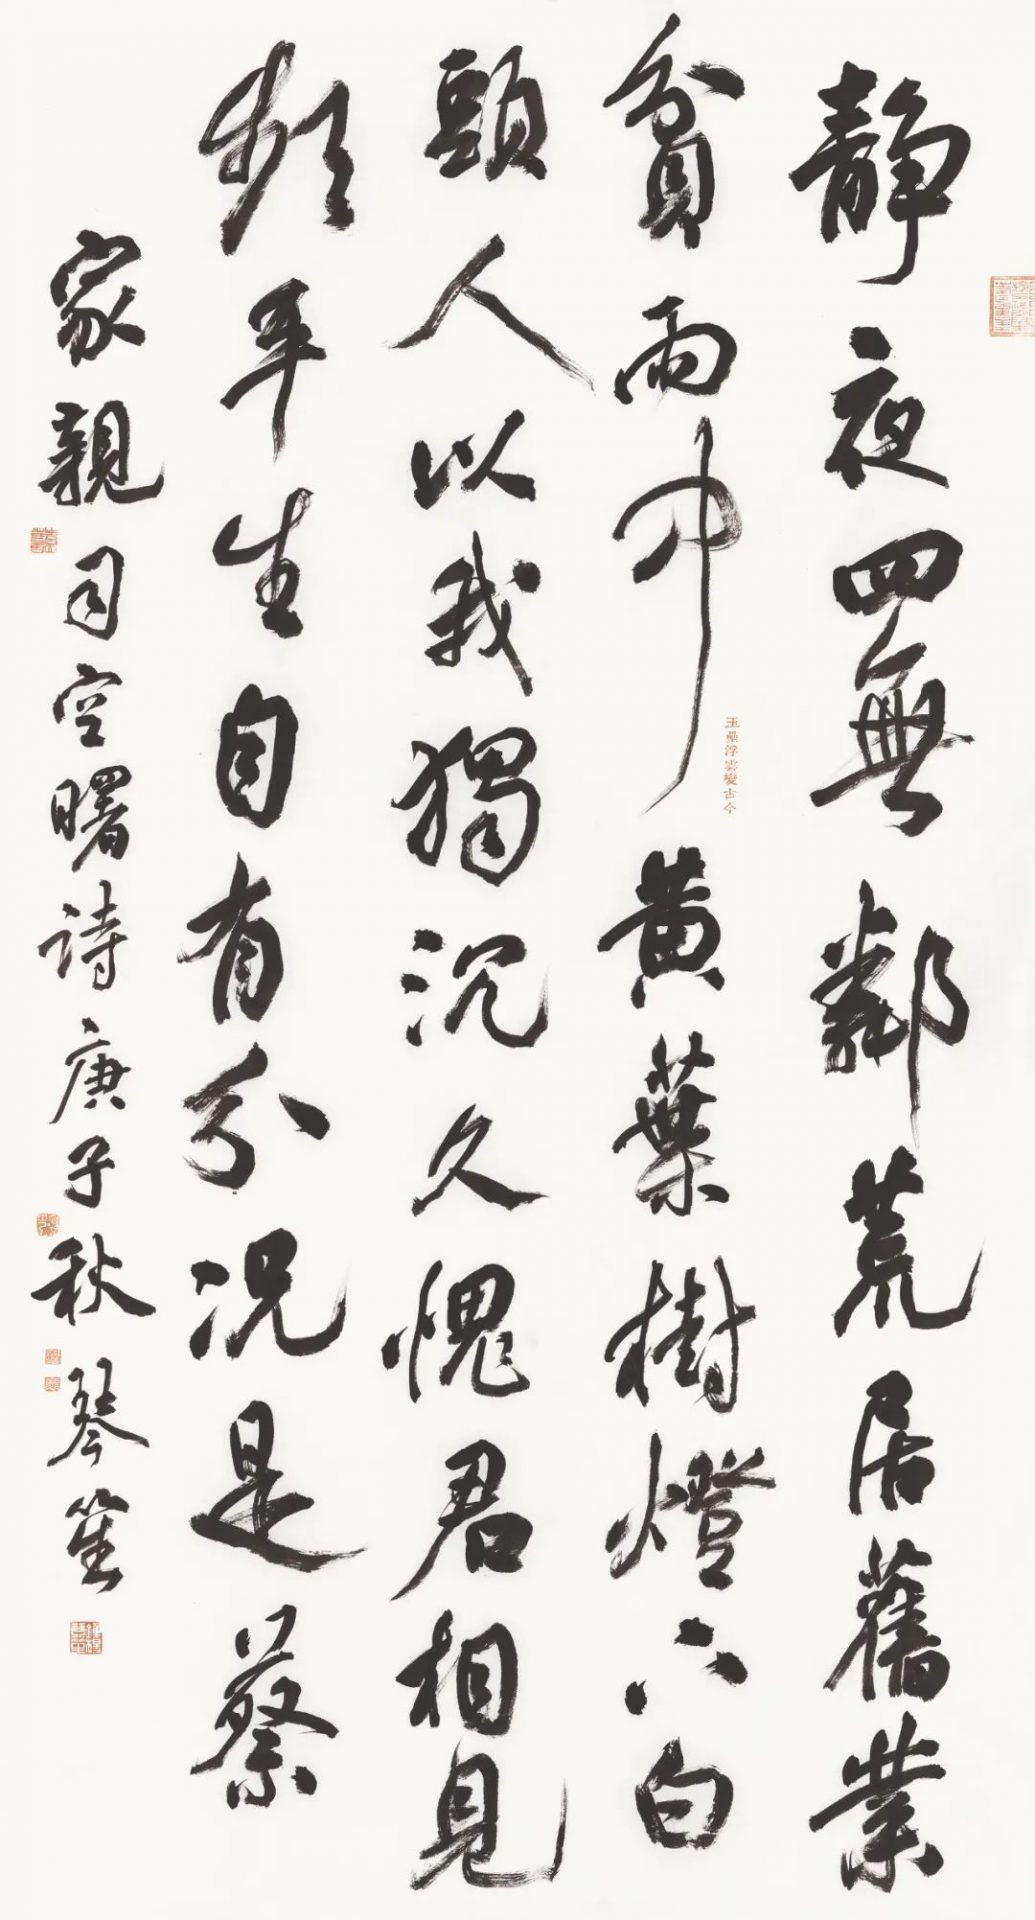 靜夜四無鄰荒居舊業
貧雨中黃葉樹燈下白
玉壘浮雲變古今
頭人以我獨沉久愧君相見
頻平生自有分況是蔡
家親 司空曙诗庚子秋 琴笙